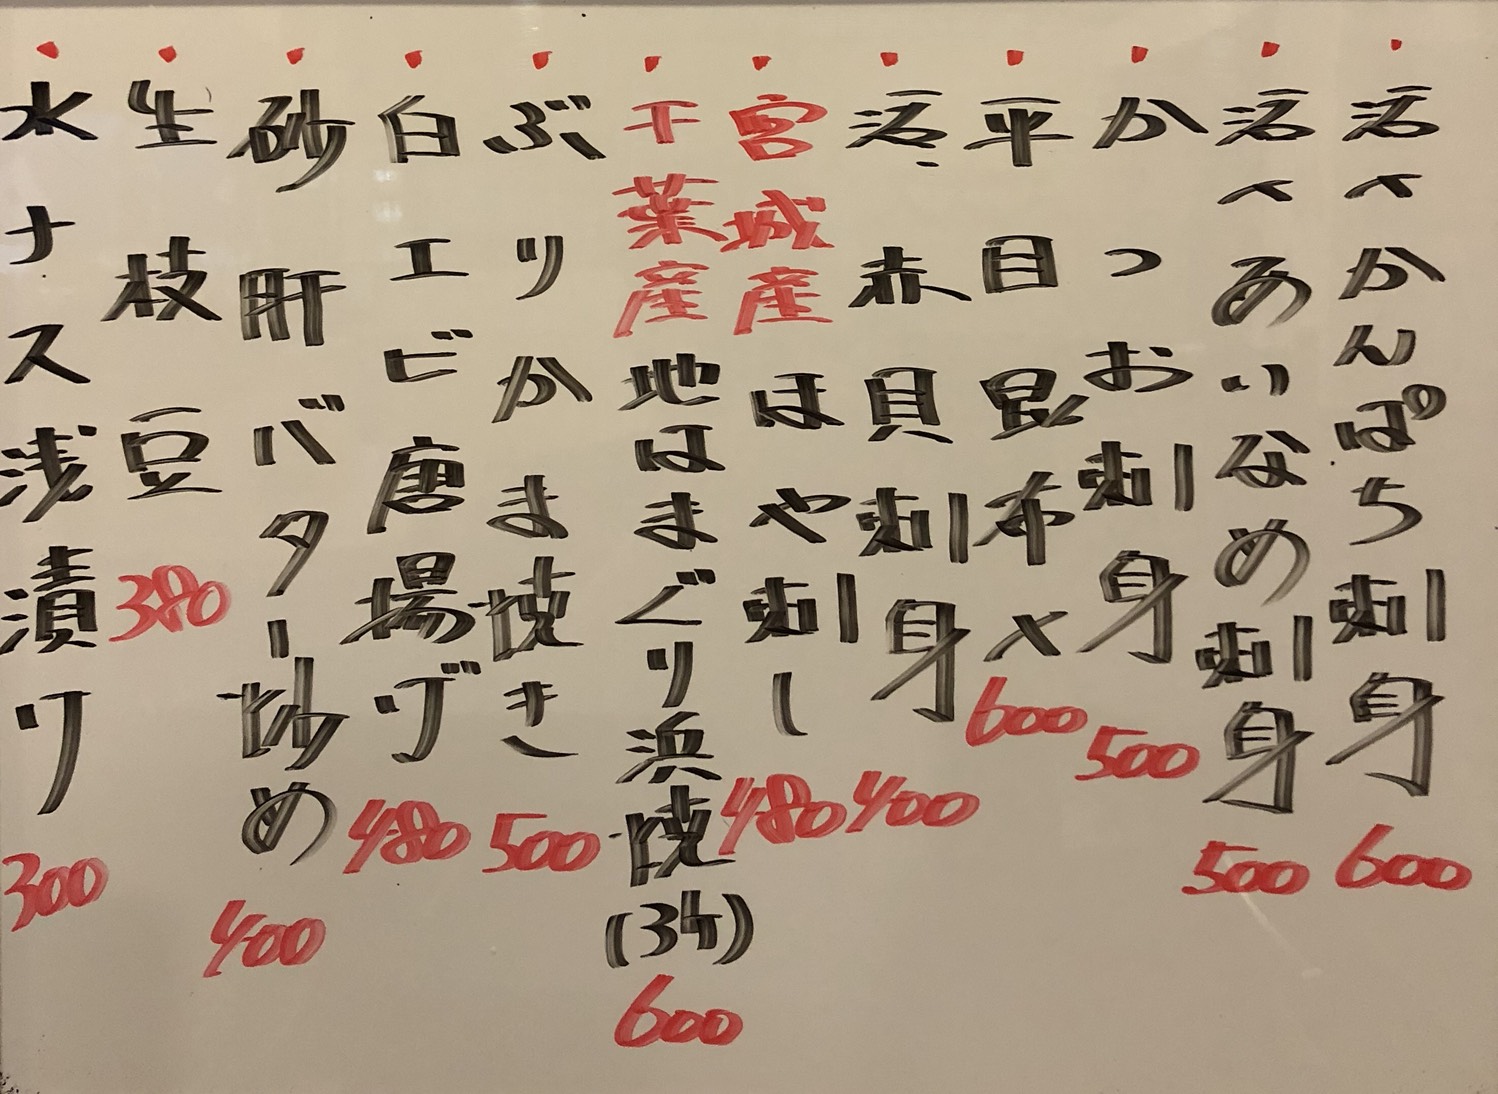 活〆かんぱち刺身 600
活〆あいなめ刺身 500
かつお刺身 500
平目昆布〆 600
活赤貝刺身 400
宮城産ほや刺し 480
千葉産地はまぐり浜焼(3ケ) 600
ぶりかま焼き 500
白エビ唐揚げ 480
砂肝バター炒め 400
生枝豆 380
水ナス浅漬り 300